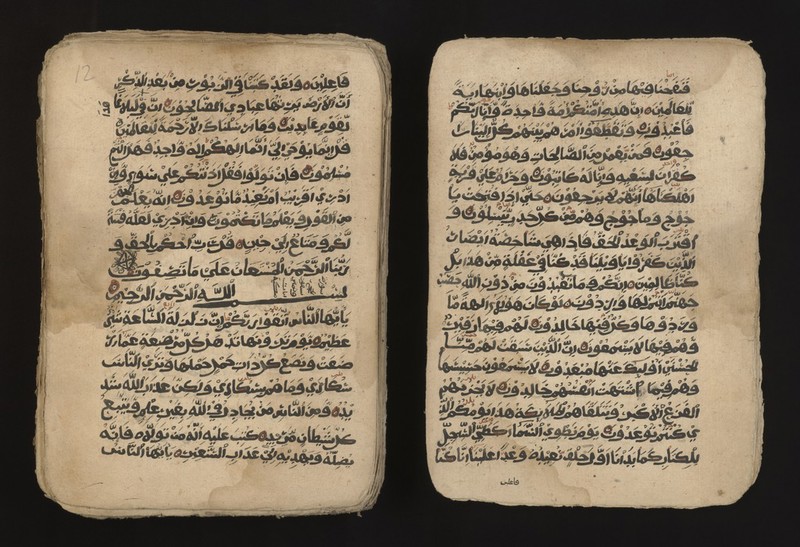 فنفخنا فيها من روحنا وجعلناها وابنها اية
للعالمين ان هذه امتكم امة واحدة وانا ربكم
فاعبدون وتقطعوا امرهم بينهم كل الينا را
جعون فمن يعمل من الصالحات وهو مومن فلا
كفران لسعيه وانا له كاتبون وحرام على قرية
اهلكناها انهم لا يرجعون حتى اذا فتحت يا
جوج وماجوج وهم من كل حدب ينسلون و
اقترب الوعد الحق فاذا هي شاخصة ابصار
الذين كفروا يا ويلنا قد كنا في غفلة من هذا بل
كنا ظالمين انكم وما تعبدون من دون الله حصب
جهنم انتم لها واردون لو كان هؤلاء الهة ما
وردوها وكل فيها خالدون لهم فيها زفير
وهم فيها لا يسمعون ان الذين سبقت لهم منا ا
لحسنى اوليك عنها مبعدون لا يسمعون حسيسها
وهم فيما اشتهت انفسهم خالدون لا يحزنهم
الفزع الاكبر وتتلقاهم الملائكة هذا يومكم الذ
ي كنتم توعدون يوم نطوي السماء كطي السجل
للكتاب كما بدانا اول خلق نعيده وعدا علينا انا كنا
فاعلين
12
فاعلين ولقد كتبنا في الزبور من بعد الذكر
ان الارض يرثها عبادي الصالحون ان في هذا لبلاغا
لقوم عابدين وما ارسلناك الا رحمة للعالمين
قل انما يوحى الي انما الهكم اله واحد فهل انتم
مسلمون فان تولوا فقل اذنتكم على سواء وان
ادري اقريب ام بعيد ما توعدون انه يعلم الجهر
من القول ويعلم ما تكتمون وان ادري لعله فتنة
لكم ومتاع الى حين قل رب احكم بالحق و
ربنا الرحمن المستعان على ما تصفون
بسم الله الرحمن الرحيم
يا ايها الناس اتقوا ربكم ان زلزلة الساعة شي
عظيم يوم ترونها تذهل كل مرضعة عما ار
ضعت وتضع كل ذات حمل حملها وترى الناس
سكارى وما هم بسكارى ولكن عذاب الله شد
يد ومن الناس من يجادل في الله بغير علم ويتبع
كل شيطان مريد كتب عليه انه من تولاه فانه
يضله ويهديه الى عذاب السعير يا ايها الناس